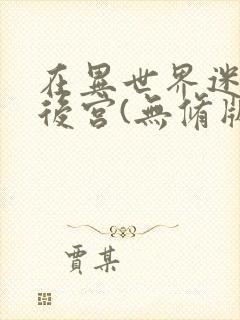 在異世界迷
後宮(無修版
賈某